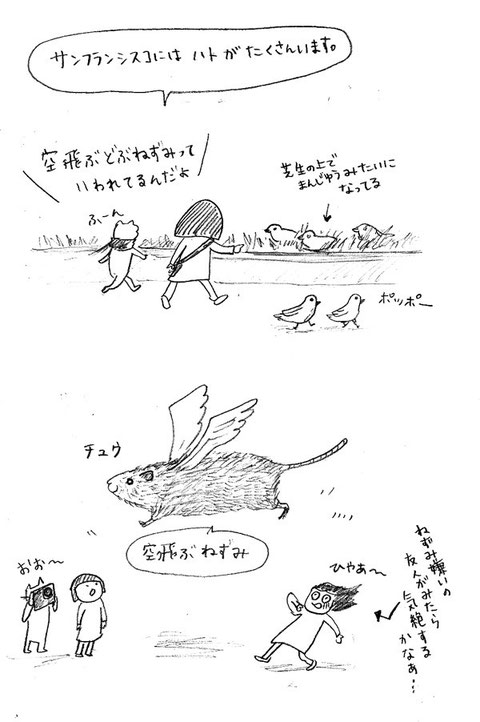 サンフランシスコには ハトが たくさんいます。
空飛ぶどぶねずみって
いわれてるんだよ
ふーん
芝生の上で
まんじゅうみたいに
なってる
ポッポー
チュウ
空飛ぶねずみ
おお〜
ひゃあ〜
ねずみ嫌いの
友人がみたら
気絶する
かなぁ…